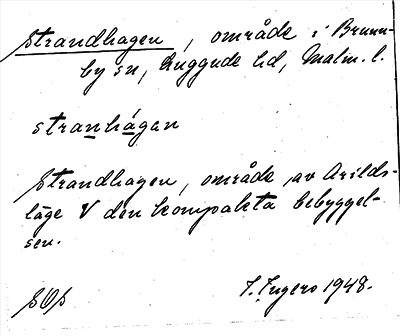 Strandhagen, område i Brunn-
by sn, Luggude hd, Malm. l.
stranhágen
Strandhagen, område av Arilds-
läge V den kompakta bebyggel-
sen.
I. Ingers 1948.